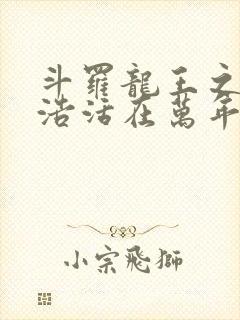 斗羅龍王之
浩活在萬年
小宗飛獅